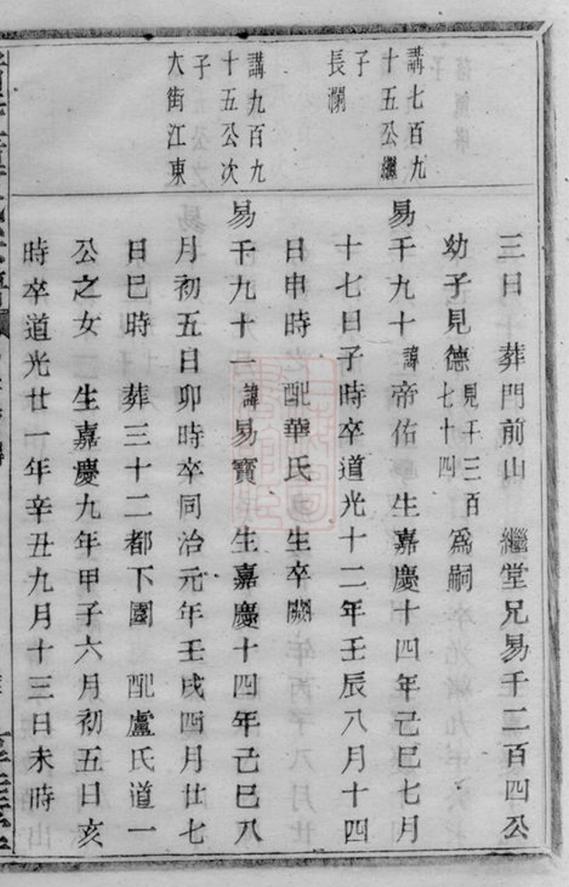 講七百九
十五公繼
子
長瀾
講九百九
十五公次
子
大街江東
三日 葬門前山 繼堂兄易千二百四公
幼子見德 見千三百七十四 為嗣
易千九十 諱帝佑 生嘉慶十四年己巳七月
十七日子時卒道光十二年壬辰八月十四
日申時 配華氏 生卒闕
易千九十一 諱易寶 生嘉慶十四年己巳八
月初五日卯時卒同治元年壬戌四月廿七
日巳時 葬三十二都下園 配盧氏道一
公之女 生嘉慶九年甲子六月初五日亥
時卒道光廿一年辛丑九月十三日未時